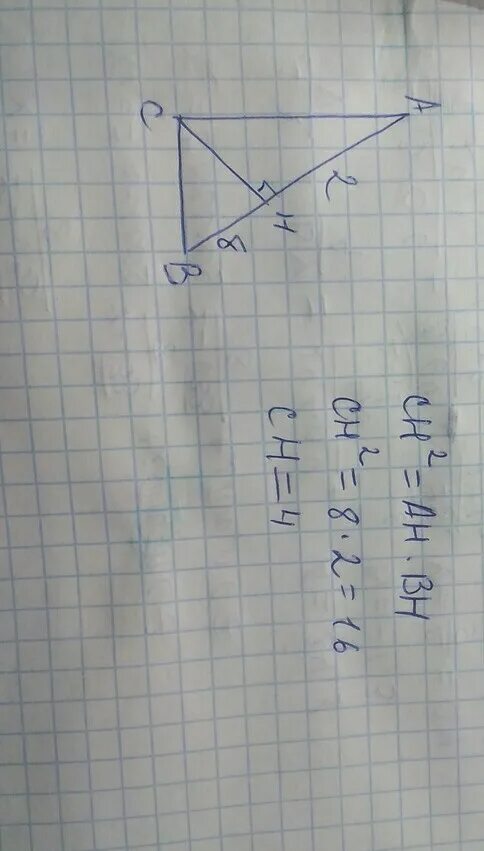 A
C
2
H
8
B
CH² = AH · BH
CH² = 8 · 2 = 16
CH = 4